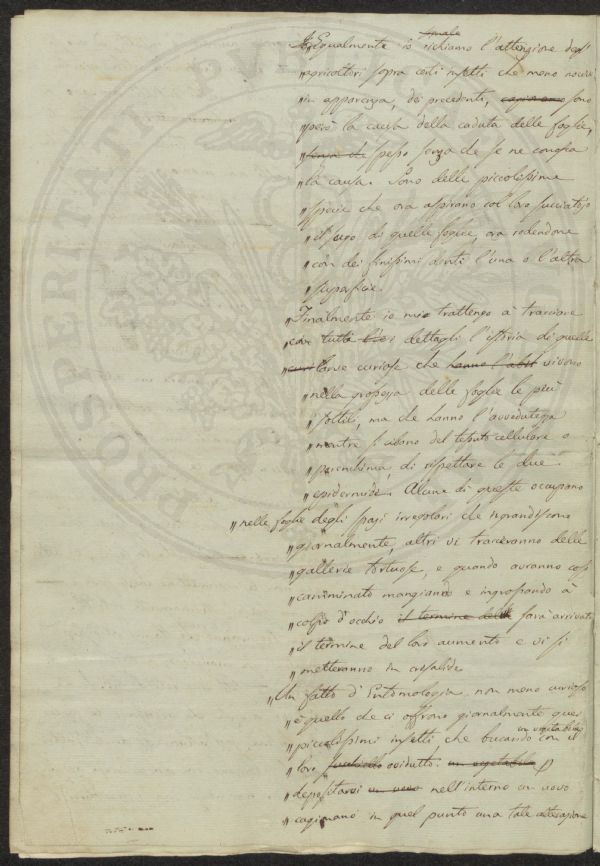 Egualmente io richiamo l'attenzione degl'
"agricoltori sopra certi insetti che meno nocivi
"in apparenza, dei precedenti, sono
"però la causa della caduta delle foglie,
"senza che spesso senza che se ne conosca
"la causa. Sono delle piccolissime
"specie che ora aspirano col loro succiatojo
"il sugo di quelle foglie, ora rodendone
"con dei finissimi denti l'una o l'altra
"superficie.
"Finalmente io mio trattengo à tracciare
"con tutti dettagli l'istoria di quelle
"larve curiose che hanno l'abit vivono
"nella grossezza delle foglie le più
"sottili, ma che hanno l'avvedutezza
"mentre si cibano del tessuto cellulare o
"parenchima, di rispettare le due
"epidermidi. Alcune di queste occupano
"nelle foglie degli spazi irregolari che ingrandiscono
"giornalmente, altri vi tracceranno delle
"gallerie tortuose, e quando avranno così
"camminato mangiando e ingrossando à
"colpo d'occhio il termine delle sarà arrivato
"il termine del loro aumento e vi si
"metteranno in crisalide.
"Un fatto d'Entomologia non meno curioso
"è quello che ci offrono giornalmente quei
un vegetabile
"piccolissimi insetti, che bucando con il
"loro ovidutto un vegetabile p
"depositarvi un uovo nell'interno un uovo
"cagionano in quel punto una tale alterazione